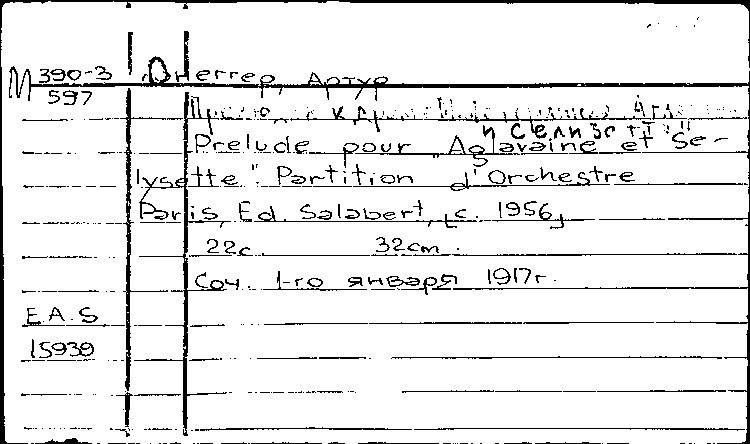 М 390-3 Онеггер, Артур
597
к
и Селизетт"
Prelude pour "Aglavaine et Se-
lysette". Partition d'Orchestre
Paris, Ed. Salabert, [c. 1956]
22c. 32cm.
Соч. 1-го января 1917г.
E.A.S.
15939